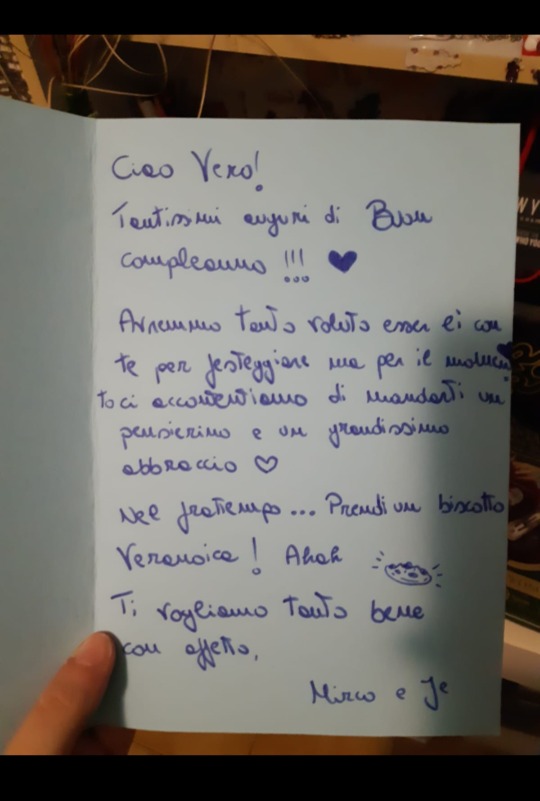 Ciao Vero!
Tantissimi auguri di Buon
compleanno !!! ♥
Avremmo tanto voluto esser lì con
te per festeggiare ma per il momen
to ci accontentiamo di mandarti un
pensierino e un grandissimo
abbraccio ♡
Nel fratempo... Prendi un biscotto
Veranoica! Ahah
Ti vogliamo tanto bene
con affetto,
Mirco e Je
WY